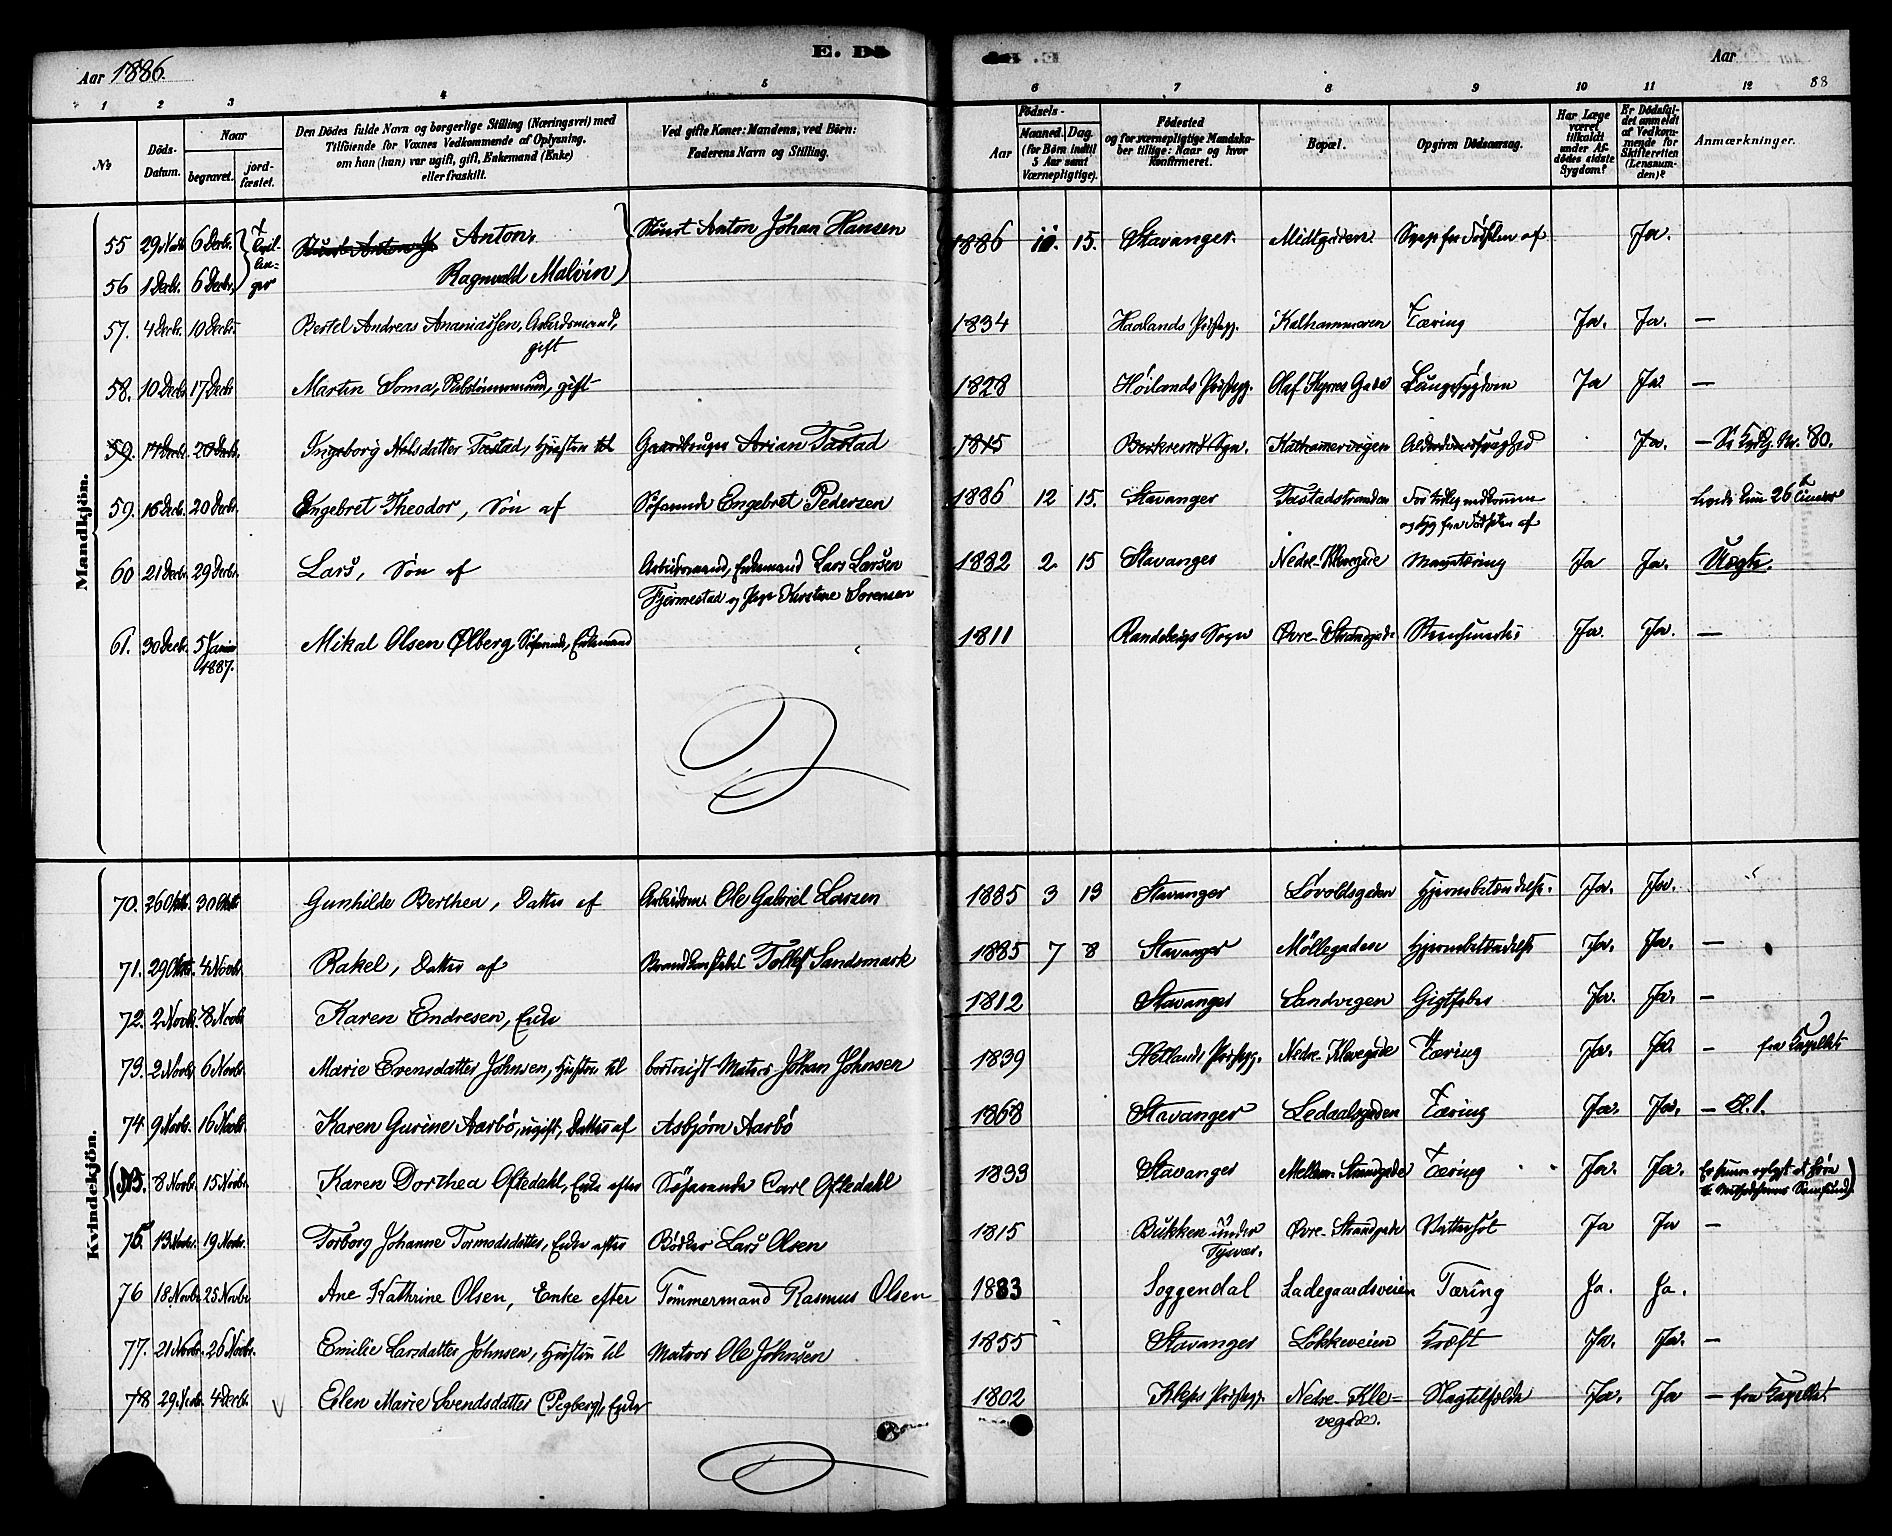 Aar 1886.
E. Dö
Aar
88
1 2 3 4 5 6 7 8 9 10 11 12
No
Döds-Datum.
Naar
begravet.
jord-fæstet.
Den Dödes fulde Navn og borgerlige Stilling (Næringsvei) med
Tilföiende for Voxnes Vedkommende af Oplysning.
om han (hun) var ugift, gift, Enkemand (Enke)
eller fraskilt.
Ved gifte Koner: Mandens, ved Börn:
Faderens Navn og Stilling.
Födsels-
Aar
Maaned. Dag.
(for Börn indtil
5 Aar samt
Værnepligtige).
Födested
og for værnepligtige Mandska-
ber tillige: Naar og hvor
konfirmeret.
Bopæl.
Opgiven Dödsaarsag.
Har Læge
været
tilkaldt
under Af-
dödes sidste
Sygdom?
Er Dödsfal-
det anmeldt
af Vedkom-
mende for
Skifteretten
(Lensman-
den)?
Anmærkninger.
Mandkjön.
55 29 Novb. 6 Decbr. Anton, Anton Johan Hansen 1886 11. 15. Stavanger. Midtgaden Syg fra Födselen af Ja.
56 1 Decbr. 6 Decbr. Ragnvald Malvin
57. 4 Decbr. 10 Decbr. Bertel Andreas Ananiassen, Arbeidsmand, 1834 Haalands Præstegj. Kalhammeren Tæring Ja. Ja. —
gift
58. 10 Decbr. 17 Decbr. Martin Soma, gift 1828 Höilands Præstegj. Olaf Kyrres Gade Lungesygdom Ja Ja. —
59. 17 Decbr. 20 Decbr. Ingeborg Nilsdatter Tastad, Hustru til Gaardbruger Arian Tastad 1815 Sogn. Kalhamervigen Alderdomssvaghed Ja. — Se Kvdkj. No. 80.
59. 16 Decbr. 20 Decbr. Engebret Theodor, Sön af Söfarende Engebret Pedersen 1886 12 15. Stavanger Tastadstranden For tidlig nedkommen
og syg fra Födselen af
levede kun 26 Timer
60 21 Decbr. 29 Decbr. Lars, Sön af Arbeidsmand, Enkemand Lars Larsen 1882 2 15 Stavanger Nedre-Klevegade Mavetæring Ja Ja. Uægte.
Fjermestad og Kirstine Sorensen
61. 30 Decbr. 5 Januar Mikal Olsen Ølberg, Söfarende, Enkemand 1811 Randebergs Sogn Øvre-Strandgade Ja. Ja. —
1887.
Kvindekjön.
70. 26 Oktb. 30 Oktb. Gunhilde Berthea, Datter af Arbeidsm. Ole Gabriel Larsen 1885 3 13 Stavanger Lövoldsgaden Hjernebetændelse. Ja. Ja.
71. 29 Oktb. 4 Novb. Rakel, Datter af Brandkonstabel Tollef Sandsmark 1885 7 8 Stavanger Möllegaden Hjernebetændelse Ja. Ja. —
72. 2 Novb. 8 Novb. Karen Endresen, Enke 1812 Stavanger Sandvigen Gigtfeber Ja. Ja. —
73. 2 Novb. 6 Novb. Marie Evensdatter Johnsen, Hustru til bortreist Matros Johan Johnsen 1839 Hetlands Præstegj. Nedre-Klevegade Tæring Ja. Ja. — fra Kapellet
74. 9 Novb. 16 Novb. Karen Gurine Aarbö, ugift, Datter af Asbjörn Aarbö 1868 Stavanger Ledaalsgaden Tæring Ja. Ja. — Kl. 1.
75. 8 Novb. 15 Novbr. Karen Dorthea Oftedahl, Enke efter Söfarende Carl Oftedahl 1833 Stavanger Mellem-Strandgade Tæring Ja. Ja. Er senere oplyst at höre
til Methodisternes Samfund)
75. 13 Novbr. 19 Novbr. Torborg Johanne Tormodsdatter, Enke efter Bödker Lars Olsen 1815 Bukken under Øvre-Strandgade Vattersot Ja Ja —
Tysvær.
76 18 Novbr. 25 Novbr. Ane Kathrine Olsen, Enke efter Tömmermand Rasmus Olsen 1833 Soggendal Ladegaardsveien Tæring Ja. Ja.
77. 21 Novbr. 26 Novbr. Emilie Larsdatter Johnsen, Hustru til Matros Ole Johnsen 1855 Stavanger Lökkeveien Kræft Ja. Ja. —
78 29 Novb. 4 Decbr. Elen Marie Svendsdatter (Pegberg), Enke 1802 Kleps Præstegj. Nedre-Kle-
vegade.
Slagtilfælde Ja. Ja — fra Kapellet